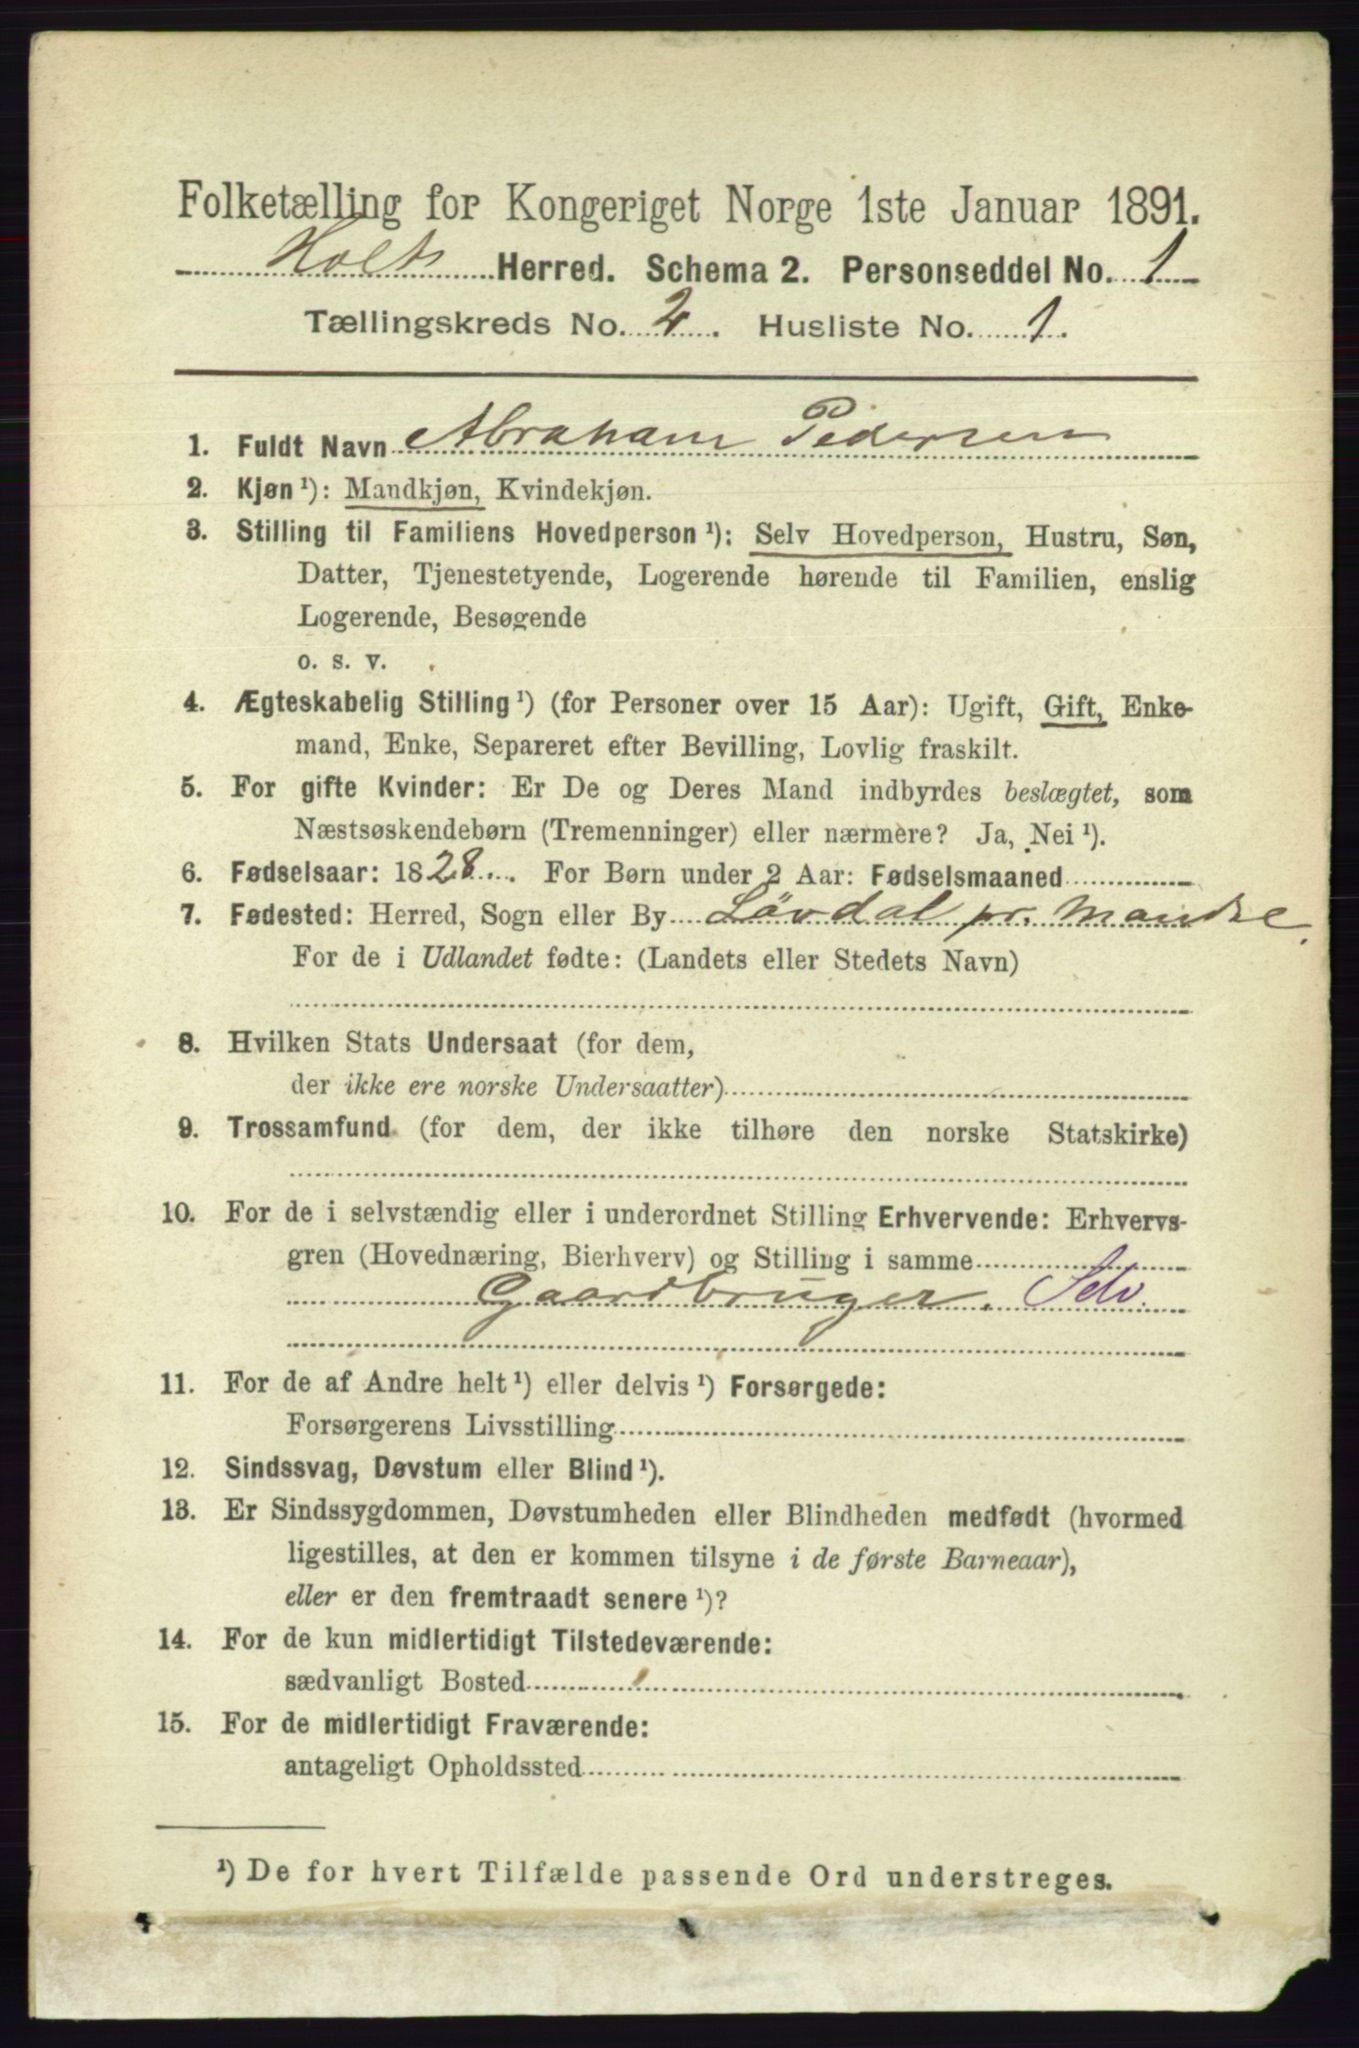 Folketælling for Kongeriget Norge 1ste Januar 1891.
Holts Herred. Schema 2. Personseddel No. 1
Tællingskreds No. 2. Husliste No. 1.
1. Fuldt Navn Abraham Pedersen
2. Kjøn ¹): Mandkjøn, Kvindekjøn.
3. Stilling til Familiens Hovedperson ¹): Selv Hovedperson, Hustru, Søn,
Datter, Tjenestetyende, Logerende hørende til Familien, enslig
Logerende, Besøgende
o. s. v.
4. Ægteskabelig Stilling ¹) (for Personer over 15 Aar): Ugift, Gift, Enke-
mand, Enke, Separeret efter Bevilling, Lovlig fraskilt.
5. For gifte Kvinder: Er De og Deres Mand indbyrdes beslægtet, som
Næstsøskendebørn (Tremenninger) eller nærmere? Ja, Nei ¹).
6. Fødselsaar: 1828. For Børn under 2 Aar: Fødselsmaaned
7. Fødested: Herred, Sogn eller By Lövdal pr.
For de i Udlandet fødte: (Landets eller Stedets Navn)
8. Hvilken Stats Undersaat (for dem,
der ikke ere norske Undersaatter)
9. Trossamfund (for dem, der ikke tilhøre den norske Statskirke)
10. For de i selvstændig eller i underordnet Stilling Erhvervende: Erhvervs-
gren (Hovednæring, Bierhverv) og Stilling i samme
Gaardbruger. Selv.
11. For de af Andre helt ¹) eller delvis ¹) Forsørgede:
Forsørgerens Livsstilling
12. Sindssvag, Døvstum eller Blind ¹).
13. Er Sindssygdommen, Døvstumheden eller Blindheden medfødt (hvormed
ligestilles, at den er kommen tilsyne i de første Barneaar),
eller er den fremtraadt senere ¹)?
14. For de kun midlertidigt Tilstedeværende:
sædvanligt Bosted
15. For de midlertidigt Fraværende:
antageligt Opholdssted
¹) De for hvert Tilfælde passende Ord understreges.